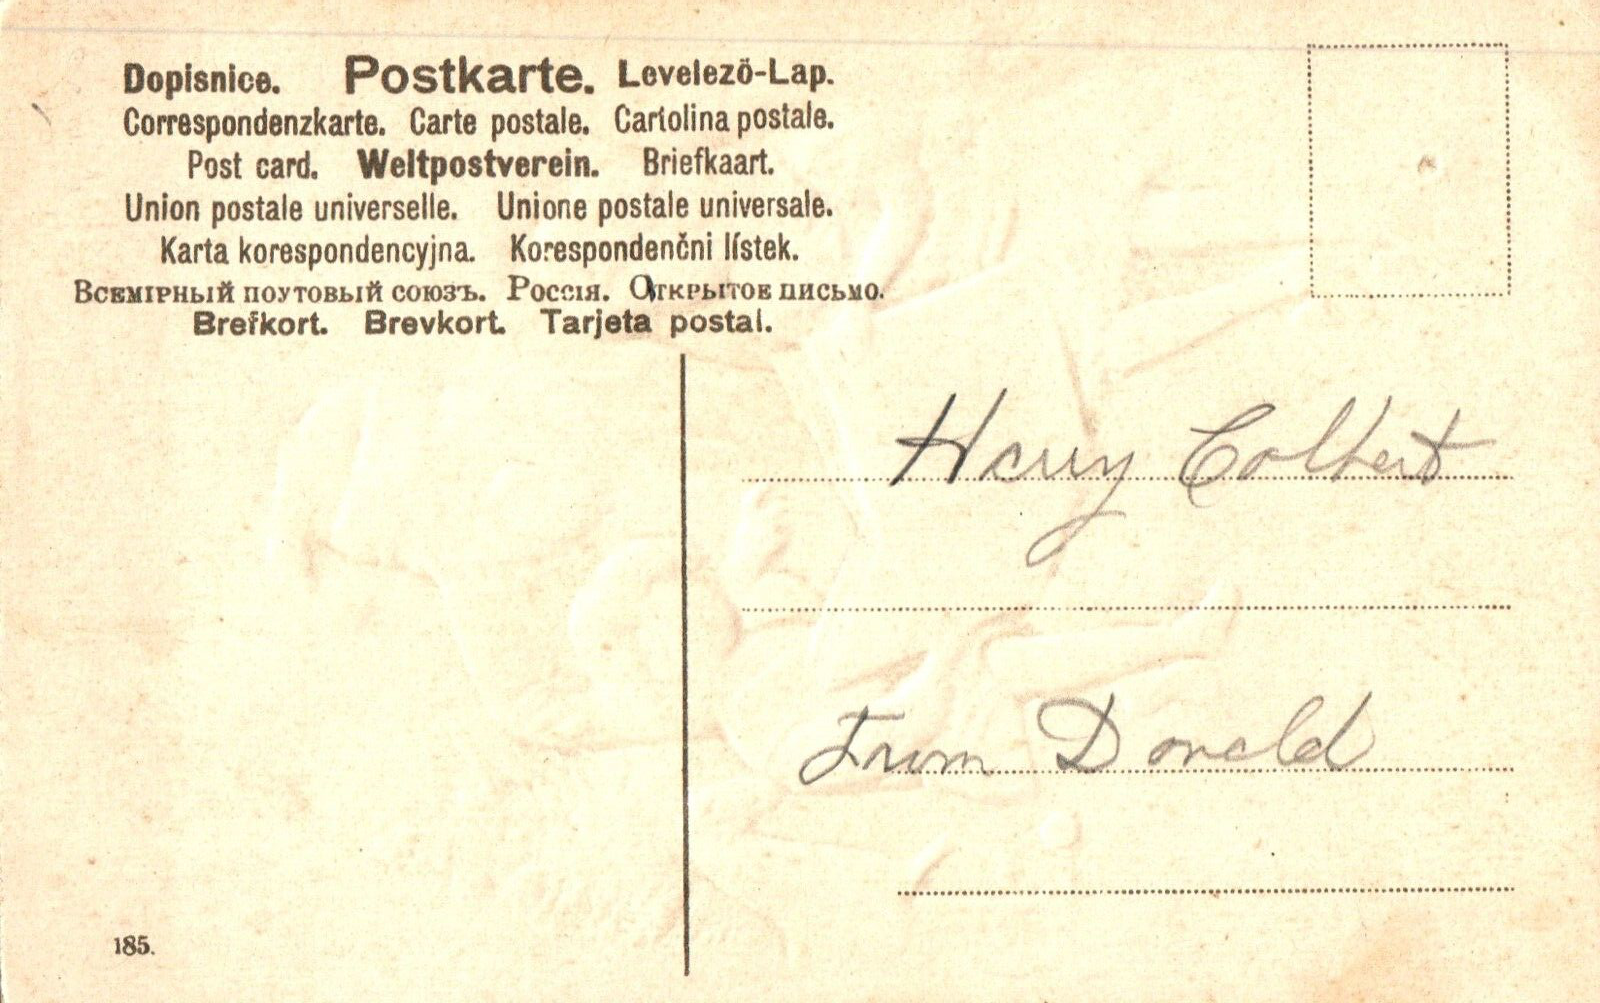 Dopisnice. Postkarte. Levelezö-Lap.
Correspondenzkarte. Carte postale. Cartolina postale.
Post card. Weltpostverein. Briefkaart.
Union postale universelle. Unione postale universale.
Karta korespondencyjna. Korespondenčni lístek.
Всемірный поутовый союзъ. Россія. Открытое письмо.
Brefkort. Brevkort. Tarjeta postal.
Harry Colbert
From Donald
185.